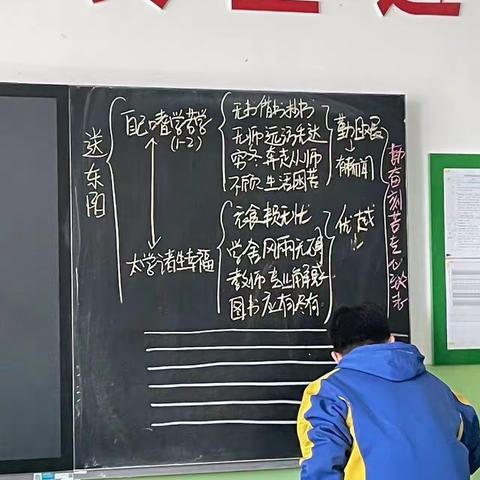 送东阳
自己嗜学苦学
(1-2)
无书借书抄书
无师远访先达
穷冬奔走从师
不顾生活困苦
勤且艰
有所闻
太学诸生幸福
衣食无忧
学舍风雨无
教师专业解惑
图书应有尽有
优越
!!
勤奋刻苦专心